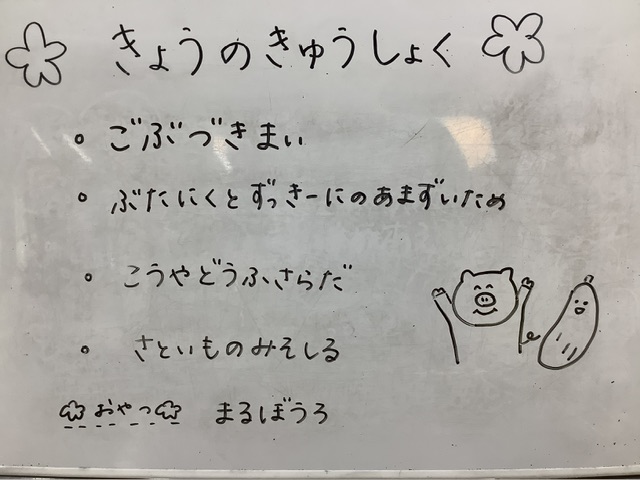 きょうのきゅうしょく
・ごぶづきまい
・ぶたにくとずっきーにのあまずいため
・こうやどうふさらだ
・さといものみそしる
おやつ まるぼうろ